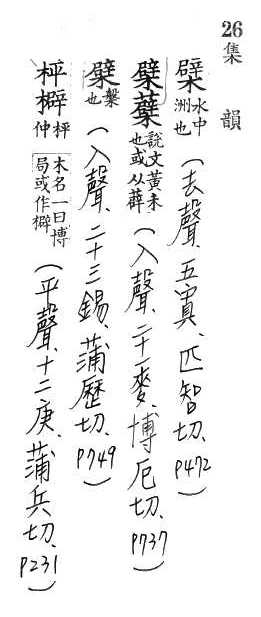 26
集韻
檗 水中洲也（去聲、五寘、匹智切、P472）
檗蘗 說文黃木也或从薜（入聲、二十一麥、博厄切、P737）
糪 糳也（入聲、二十三錫、蒲歷切、P749）
枰㯅 枰仲木名一曰博局或作㯅（平聲、十二庚、蒲兵切、P231）